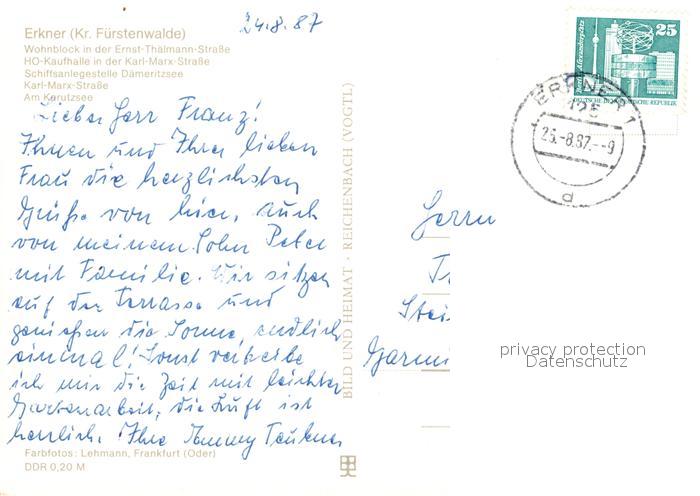 24.8.87
Erkner (Kr. Fürstenwalde)
Wohnblock in der Ernst-Thälmann-Straße
HO-Kaufhalle in der Karl-Marx-Straße
Schiffsanlegestelle Dämeritzsee
Karl-Marx-Straße
Am Karutzsee
Lieber Herr Franz!
Ihnen und Ihrer lieben
Frau die herzlichsten
Grüße von hier, auch
von meinem Sohn Peter
mit Familie. Wir sitzen
auf der Terrasse und
genießen die Sonne, endlich
einmal! Sonst vertreibe
ich mir die Zeit mit leichter
Gartenarbeit, die Luft ist
herrlich. Ihre
Farbfotos: Lehmann, Frankfurt (Oder)
DDR 0,20 M
BILD UND HEIMAT · REICHENBACH (VOGTL)
25
Berlin, Alexanderplatz
DEUTSCHE DEMOKRATISCHE REPUBLIK
ERKNER 1
125
25.-8.87.--9
d
Herrn
privacy protection
Datenschutz